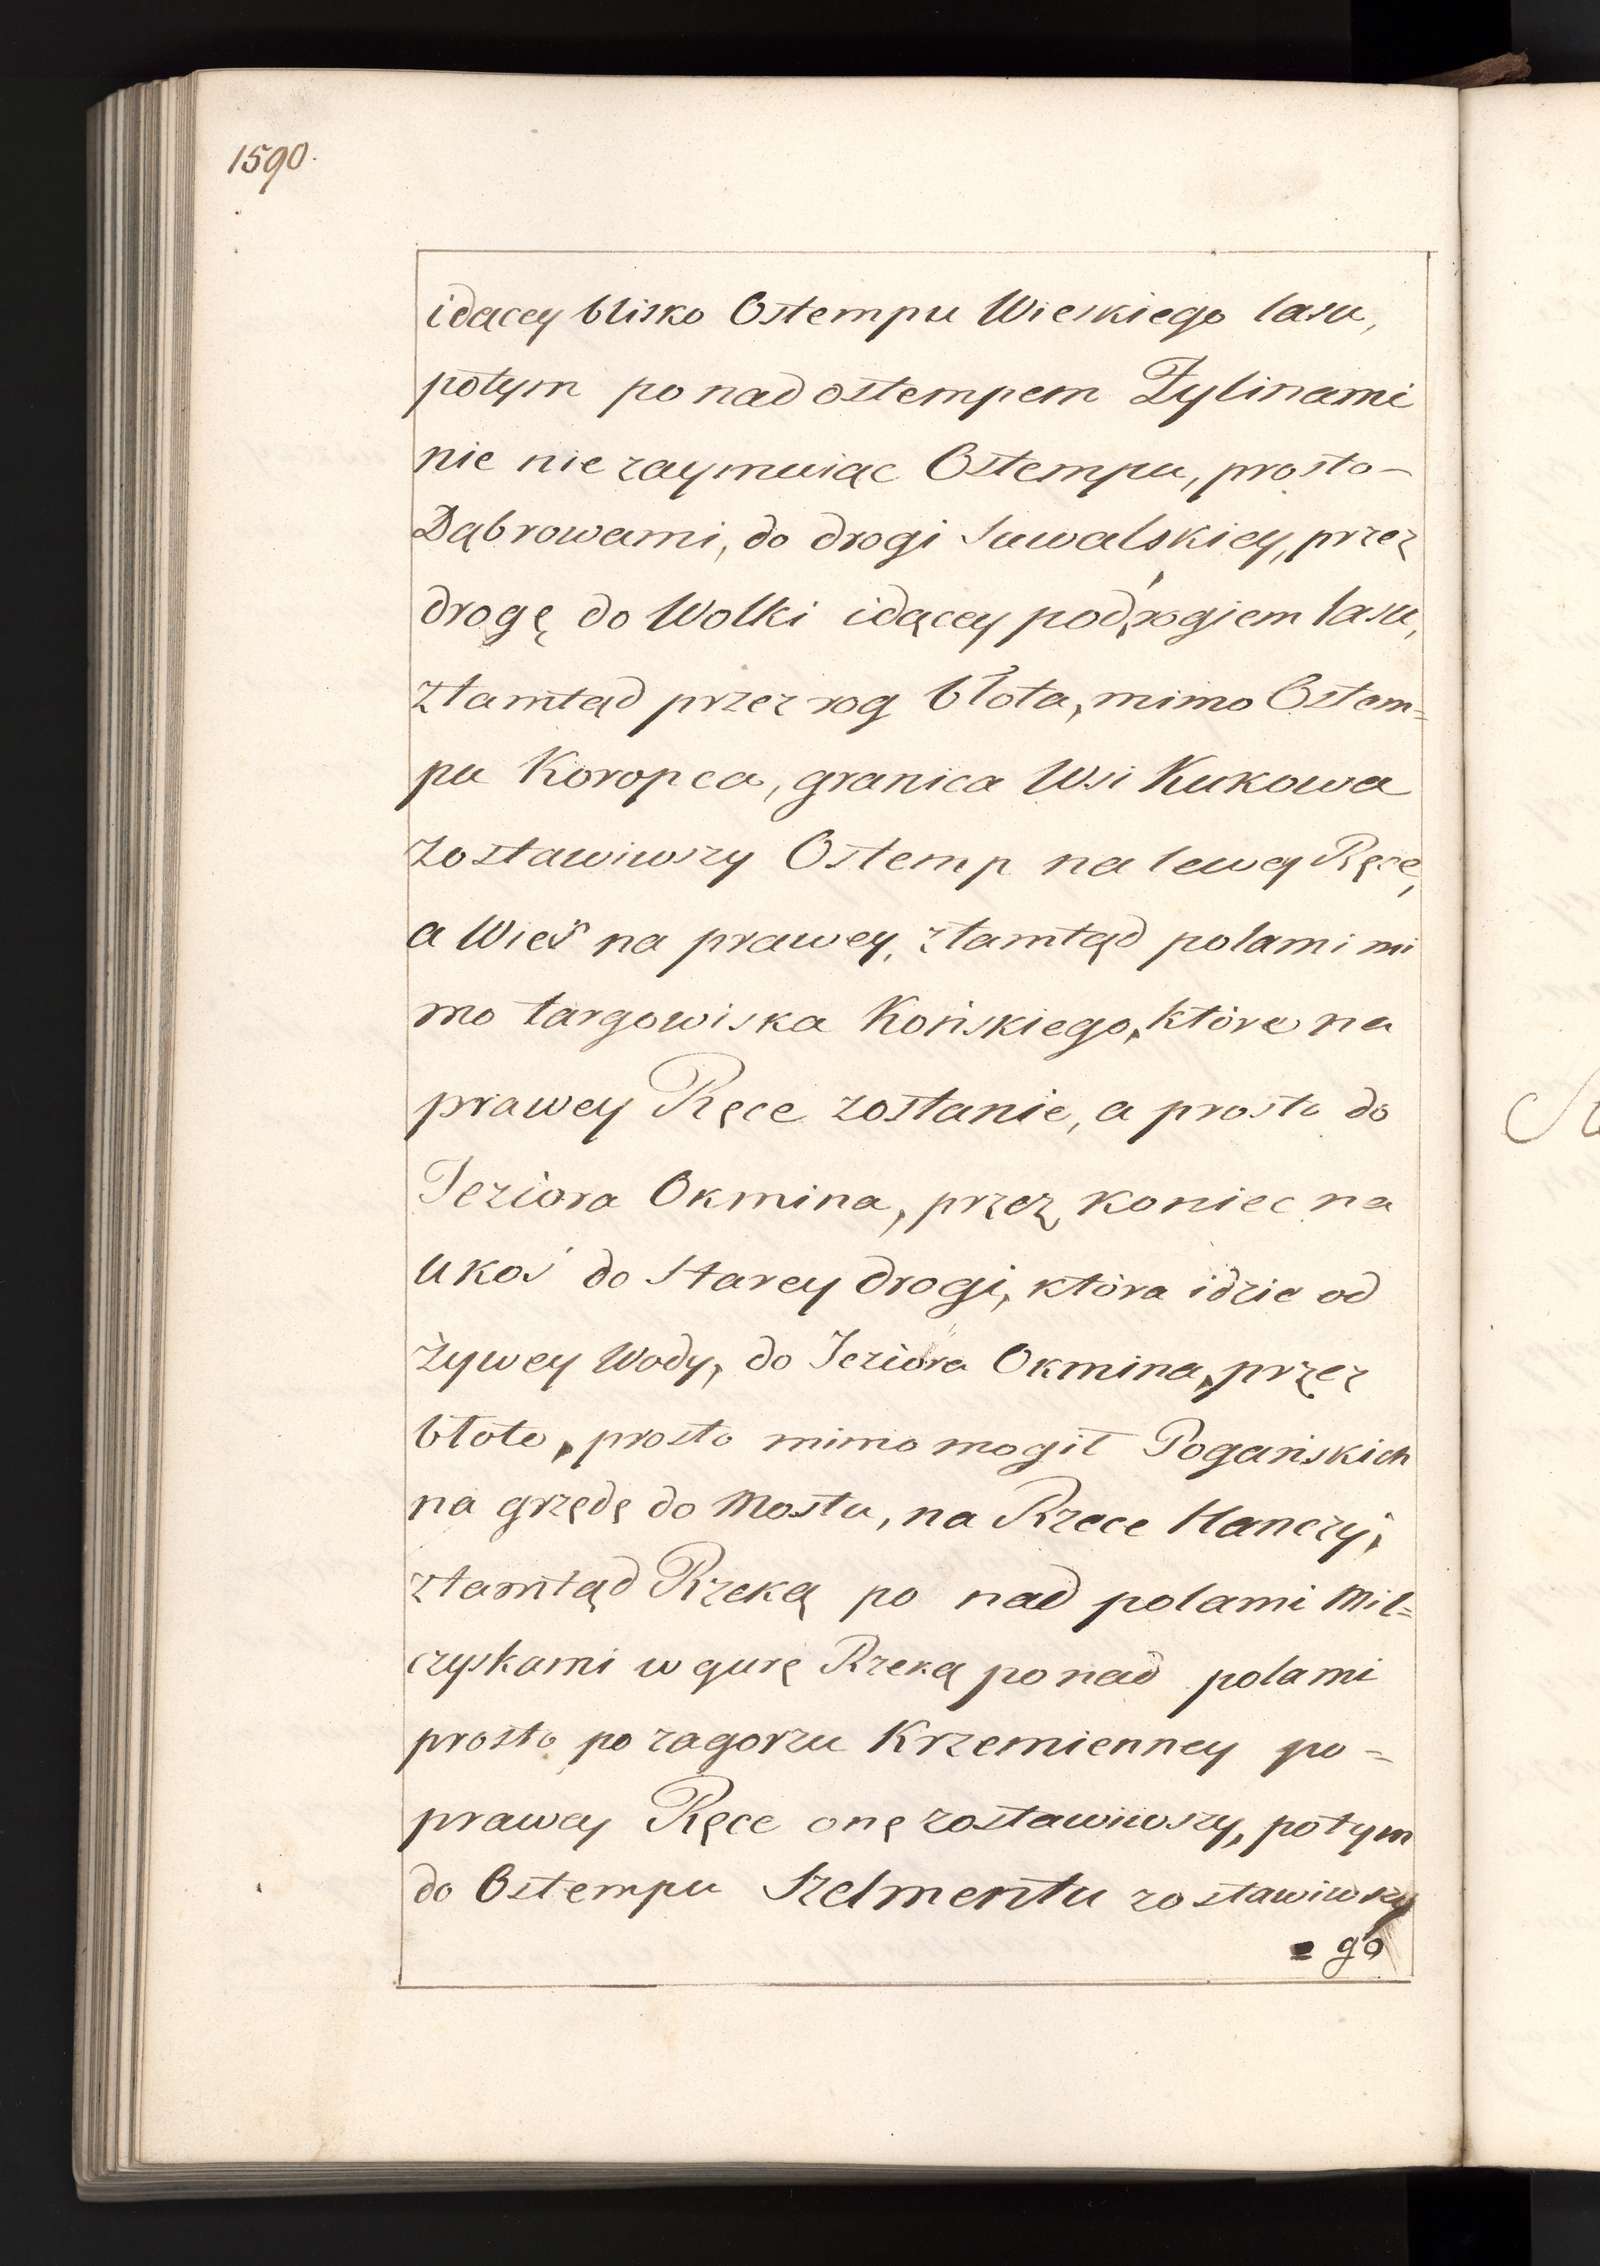 1590.
idącey blisko Ostempu Wieskiego lasu,
potym po nad ostempem Zylinami
nie nie zaymuiąc Ostempu, prosto –
Dąbrowami, do drogi Suwalskiey, przez
drogę do Wolki idącey pod rogiem lasu,
ztamtąd przez rog błota, mimo Ostem=
pu Koropca, granica Wsi Kukowa
zostawiwszy Ostemp na lewey Ręce,
a Wieś na prawey, ztamtąd polami mi
mo targowiska Końskiego, które na
prawey Ręce zostanie, a prosto do
Jeziora Okmina, przez koniec na
ukoś do starey drogi, która idzie od
Żywey Wody, do Jeziora Okmina, przez
błoto, prosto mimo mogił Pogańskich
na grzędę do Mostu, na Rzece Hanczy,
ztamtąd Rzeką po nad polami Mil=
czyskami w gurę Rzeką po nad polami
prosto po zagorzu Krzemienney po=
prawey Ręce onę zostawiwszy, potym
do Ostempu Szelmentu zostawiwszy
= go